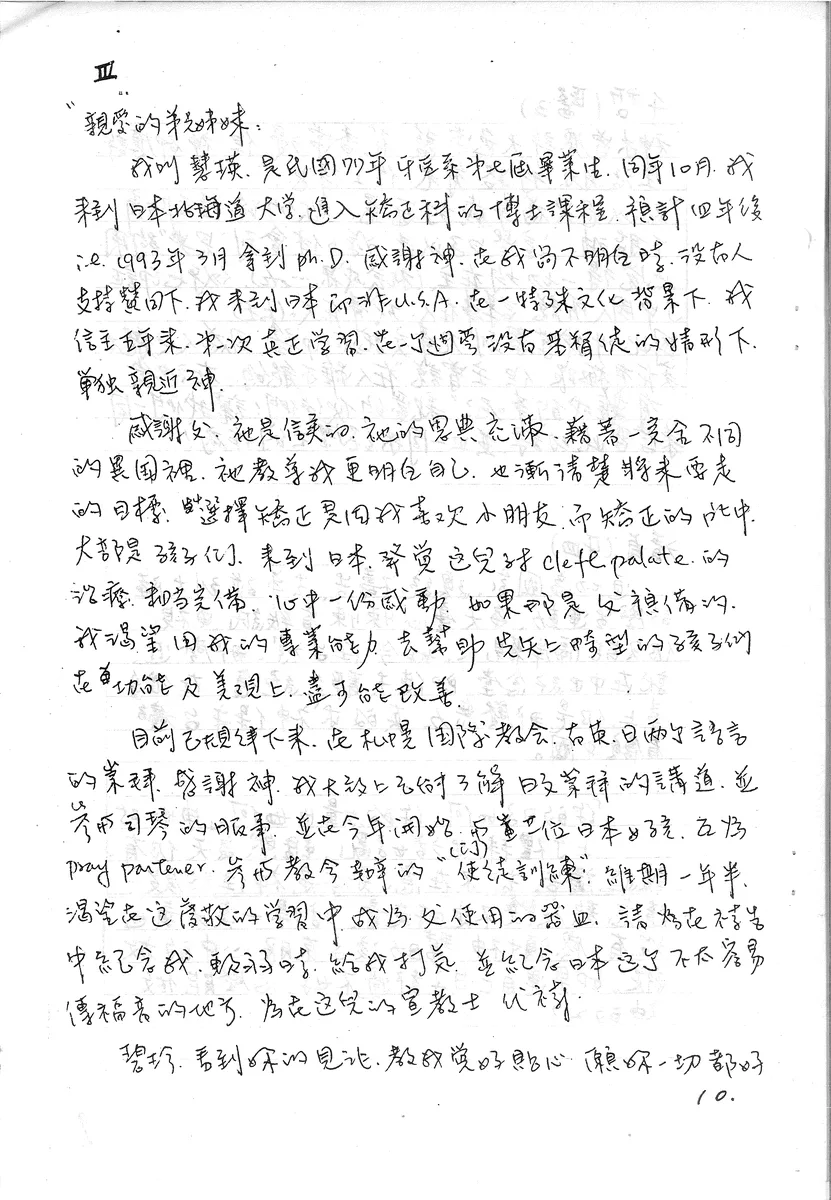 III
"親愛的弟兄姊妹:
我叫慧瑛. 是民國77年牙医系第七屆畢業生. 同年10月. 我
來到日本北海道大学. 進入矯正科的博士課程. 預計四年後
i.e. 1993年3月拿到ph.D. 感謝神. 在我尚不明白時. 沒有人
支持贊同下. 我來到日本而非U.S.A. 在一特殊文化背景下. 我
信主五年來. 第一次真正学習. 在一个週啻沒有基督徒的情形下.
單独親近神.
感謝父. 祂是信实的. 祂的恩典充沛. 藉著一完全不同
的異国裡. 祂教導我更明白自己. 也漸清楚將來要走
的目標. 選擇矯正是因我喜欢小朋友. 而矯正的pt中.
大部是孩子们. 來到日本. 發覚這兒对cleft palate. 的
治療. 相当完備. 心中一份感動. 如果那是父預備的.
我渴望用我的專業能力去幫助先天上畸型的孩子們
在功能及美觀上. 盡可能改善.
目前已規律下來. 在札幌国际教会. 有英. 日两个語言
的崇拜. 感謝神. 我大致上已能了解日文崇拜的講道. 並
参加司琴的服事. 並在今年開始. 与位日本女孩. 互為
pray partener. 参加教会辦的"使徒訓練". 維期一年半.
渴望在這裝敬的学習中. 成為父使用的器皿. 請為在禱告
中紀念我. 軟弱時. 給我打氣. 並紀念日本這个不太容易
傳福音的地方. 為在這兒的宣教士代禱.
碧珍. 看到妳的見証. 教我覚好貼心. 願妳一切都好
10.